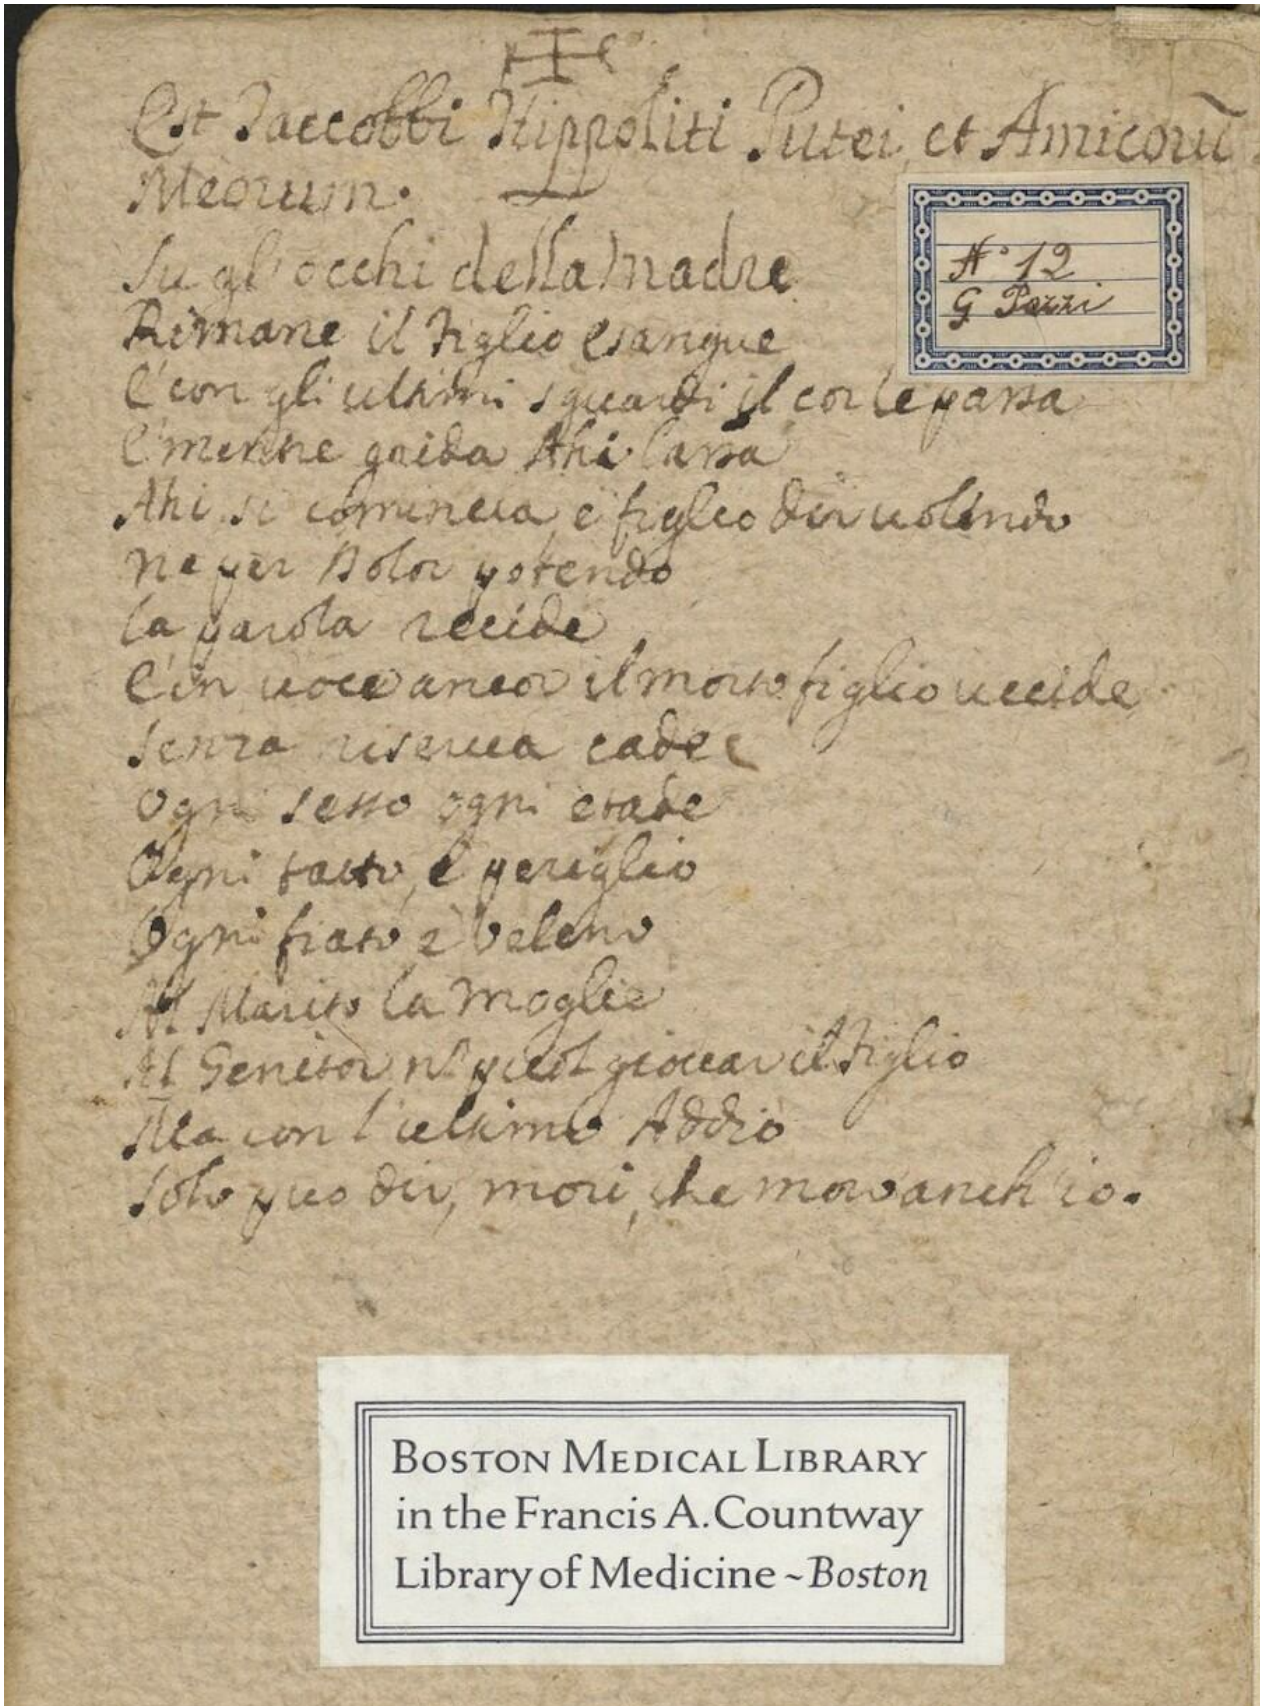 Est Iaccobbi Hippoliti Putei, et Amicorū
Meorum.
N° 12
G Pozzi
Su gl' occhi della Madre
Rimane il Figlio esangue
E con gli ultimi sguardi il cor le passa
E mentre grida Ahi lassa
Ahi si comincia e figlio dir uolendo
ne per Dolor potendo
la parola recide
E in uoce ancor il morto figlio uccide
senza riserua cade
Ogni sesso ogni etade
Ogni tatto, è periglio
Ogni fiato è Veleno
Al Marito la Moglie
Al Genitor puol giouar il Figlio
Ma con l'ultimo Addio
Solo puo dir, mori, che moro anch'io.
BOSTON MEDICAL LIBRARY
in the Francis A. Countway
Library of Medicine ~ Boston